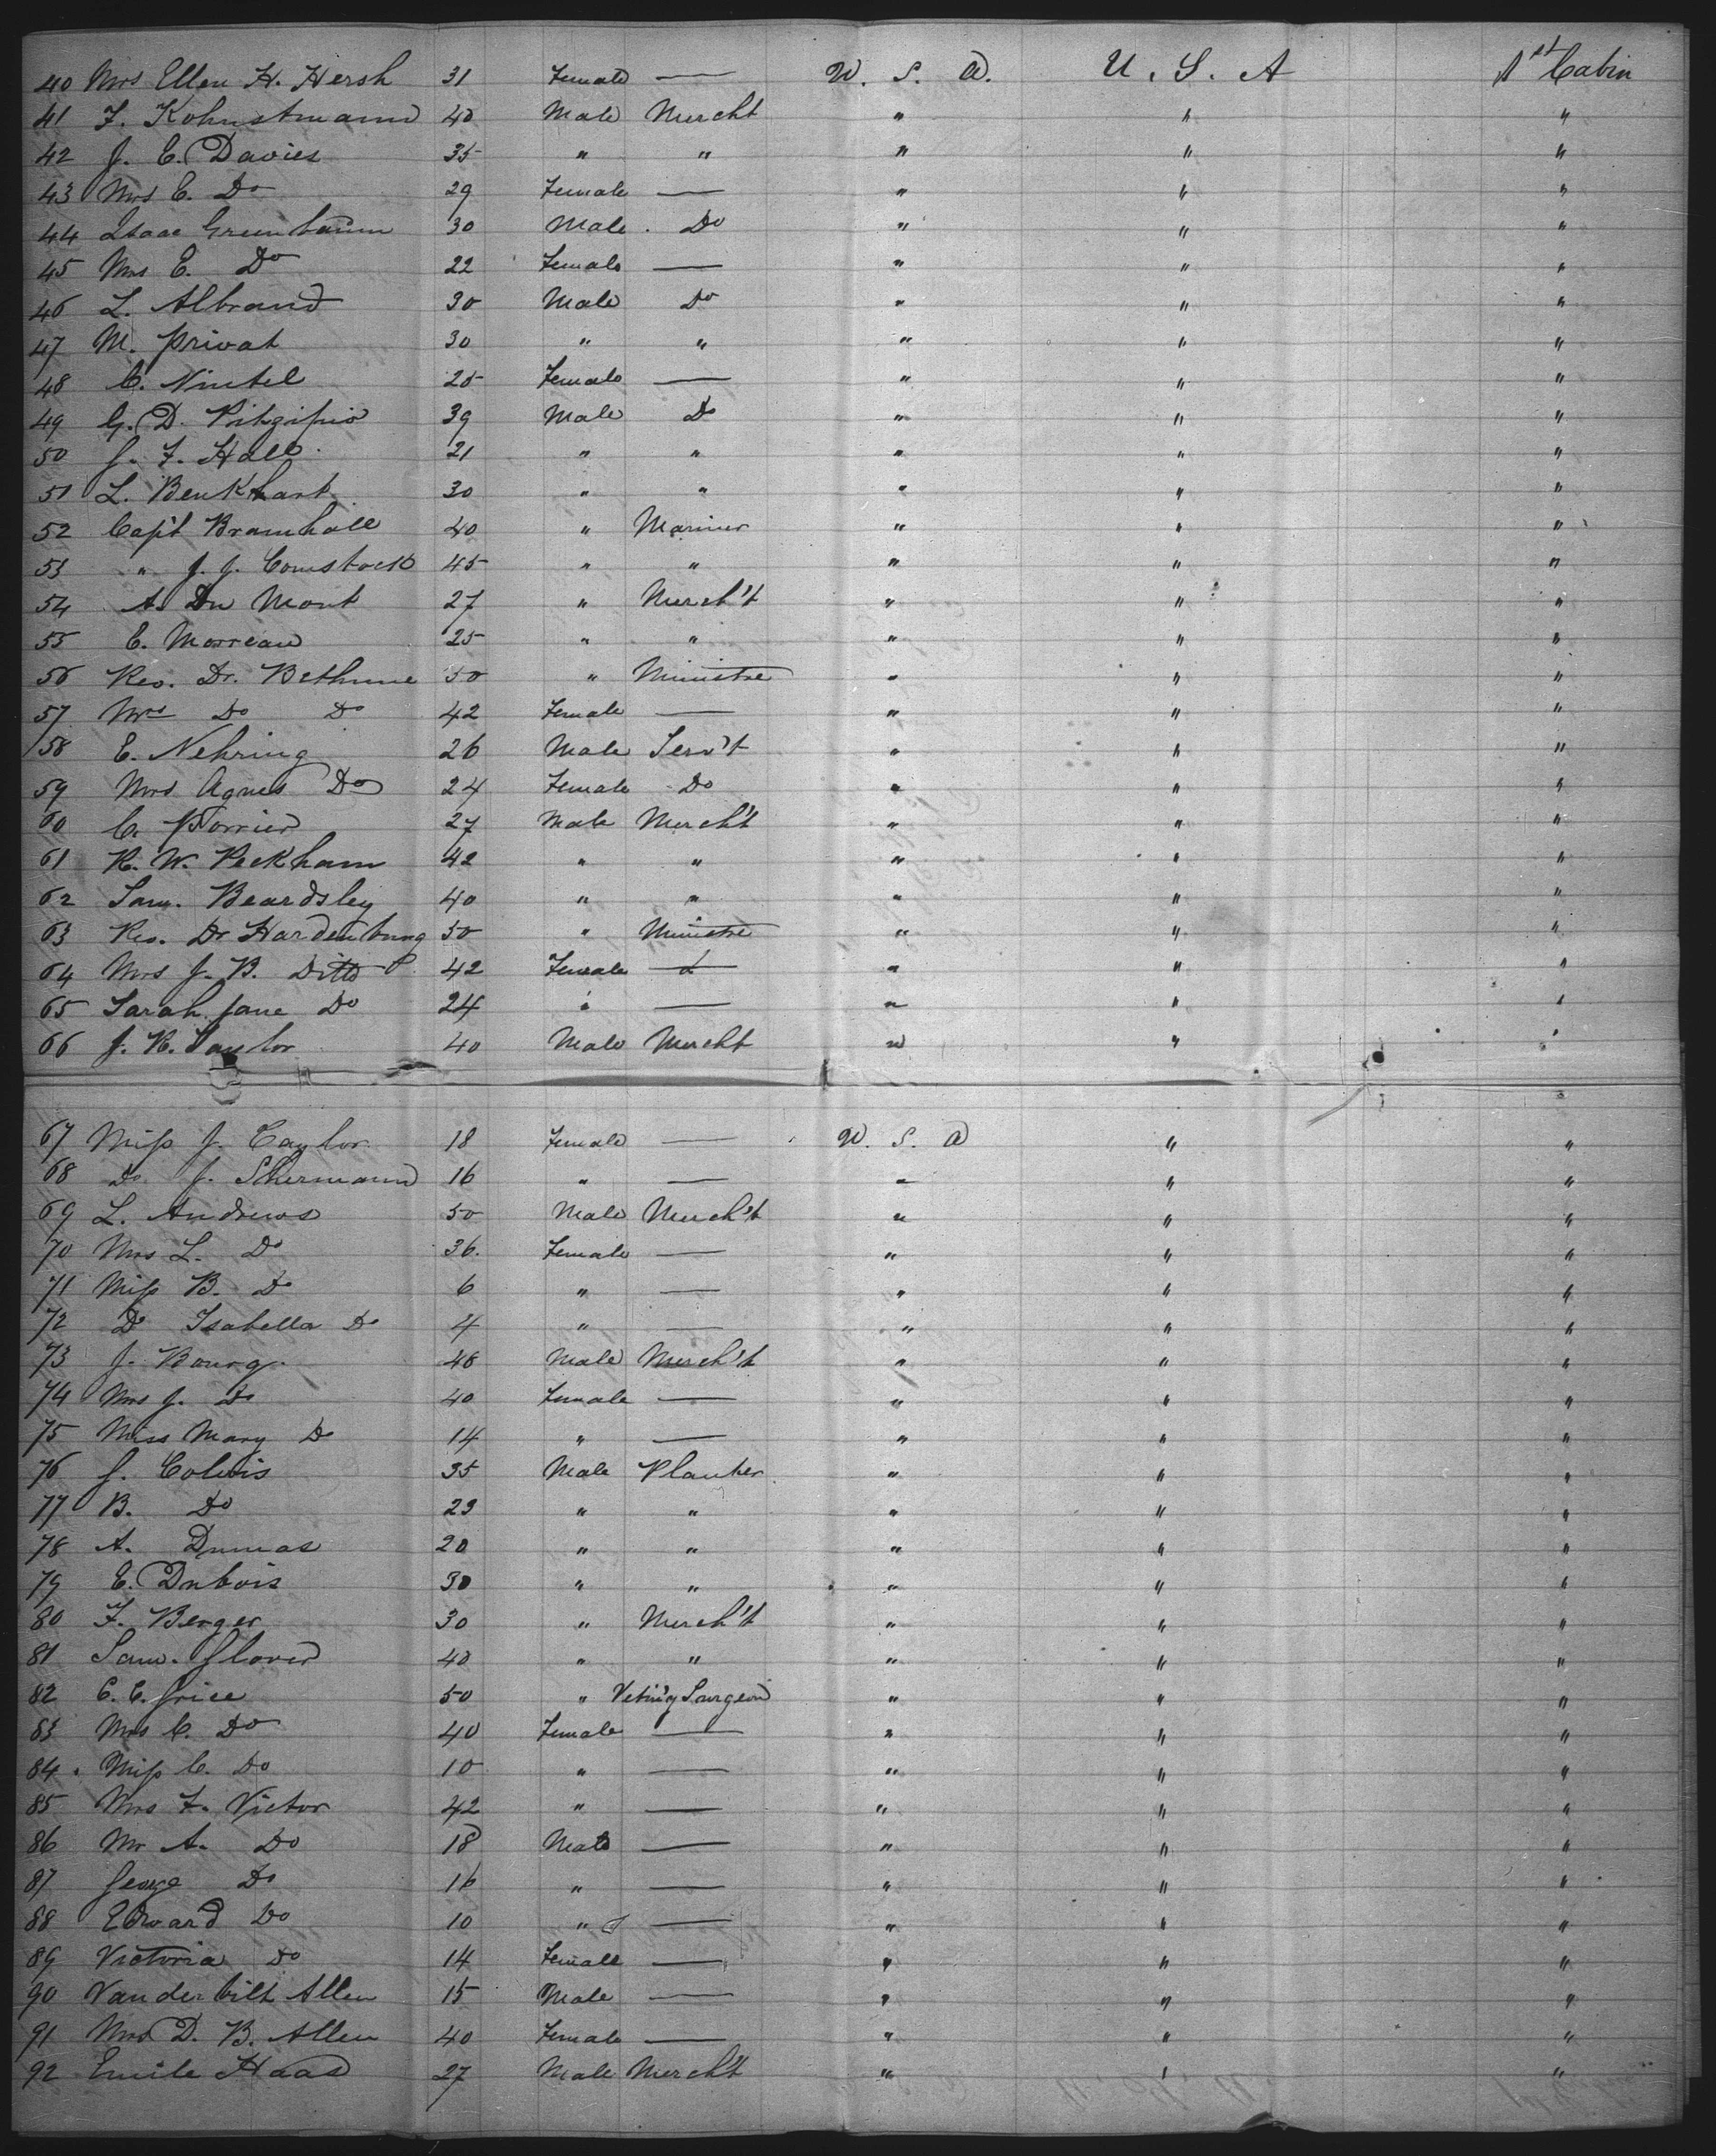 40 Mrs Ellen H. Hersh 31 Female — U. S. A. U. S. A 1st Cabin
41 F. Kohnstmann 40 Male Mercht " " "
42 J. E. Davies 35 " " " " "
43 Mrs E. Do 29 Female — " " "
44 Isaac Greenbaum 30 Male Do " " "
45 Mrs E. Do 22 Female — " " "
46 L. Albrand 30 Male Do " " "
47 M. Privat 30 " " " " "
48 C. Nintel 25 Female — " " "
49 G. D. Pitzipio 39 Male Do " " "
50 J. F. Hall 21 " " " " "
51 L. Benkhart 30 " " " " "
52 Capt Bramhall 40 " Mariner " " "
53 " J. J. Comstock 45 " " " " "
54 A. Du Mont 27 " Merch't " " "
55 E. Morreau 25 " " " " "
56 Rev. Dr. Bethune 50 " Ministre " " "
57 Mrs Do Do 42 Female — " " "
58 E. Nehring 26 Male Serv't " " "
59 Mrs Agnes Do 24 Female Do " " "
60 C. Porrier 27 Male Merch't " " "
61 R. W. Peckham 42 " " " " "
62 Sam. Beardsley 40 " " " " "
63 Rev. Dr Hardenburg 50 " Ministre " " "
64 Mrs J. B. Ditto 42 Female — " " "
65 Sarah Jane Do 24 " — " " "
66 J. R. Taylor 40 Male Mercht " " "
67 Miss J. Taylor 18 Female — U. S. A " "
68 Do J. Shermann 16 " — " " "
69 L. Andrews 50 Male Merch't " " "
70 Mrs L. Do 36. Female — " " "
71 Miss B. Do 6 " — " " "
72 Do Isabella Do 4 " — " " "
73 J. Bourg 48 Male Merch't " " "
74 Mrs J. Do 40 Female — " " "
75 Miss Mary Do 14 " — " " "
76 J. Colvis 35 Male Planter " " "
77 B. Do 29 " " " " "
78 A. Dumas 20 " " " " "
79 E. Dubois 30 " " " " "
80 F. Berger 30 " Merch't " " "
81 Sam. Glover 40 " " " " "
82 C. C. Grice 50 " Vetin'y Surgeon " " "
83 Mrs C. Do 40 Female — " " "
84 Miss C. Do 10 " — " " "
85 Mrs F. Victor 42 " — " " "
86 Mr A. Do 18 Male — " " "
87 George Do 16 " — " " "
88 Edward Do 10 " — " " "
89 Victoria Do 14 Female — " " "
90 Vanderbilt Allen 15 Male — " " "
91 Mrs D. B. Allen 40 Female — " " "
92 Emile Haas 27 Male Mercht " " "